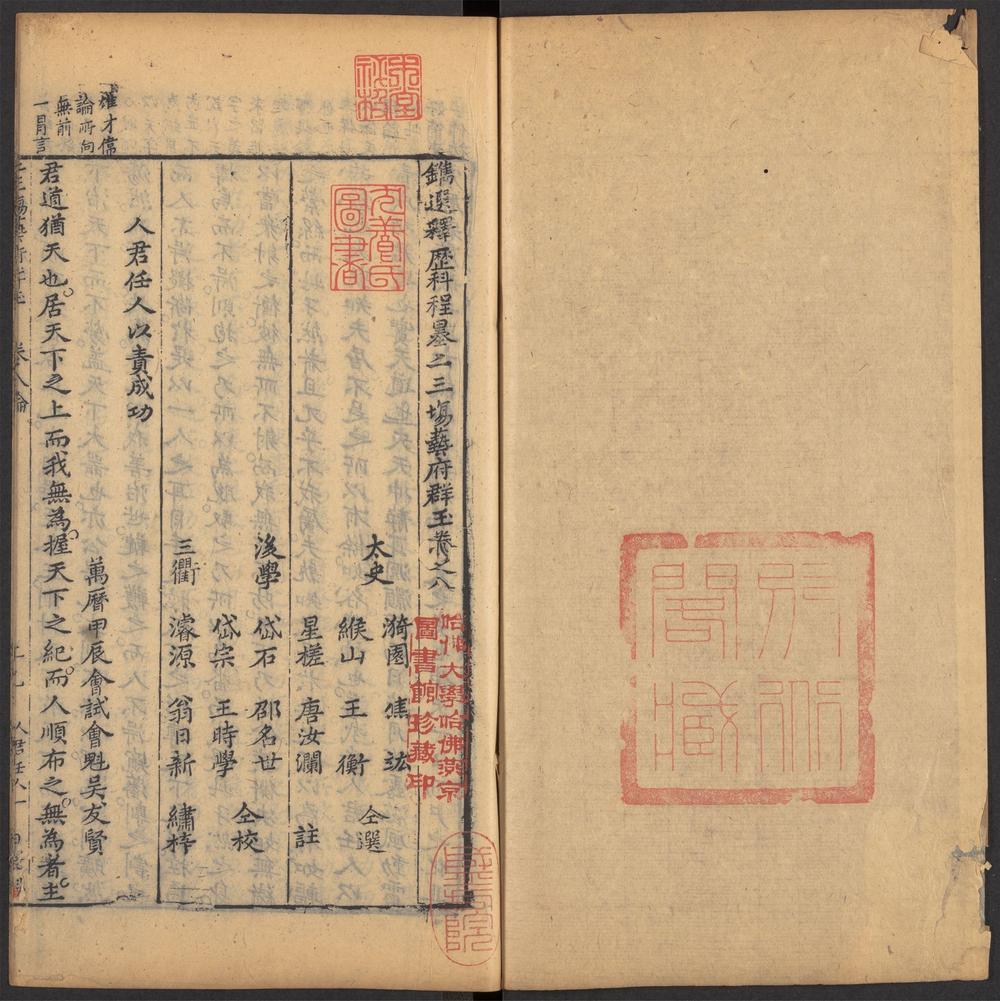 鐫選釋歷科程墨二三塲藝府群玉卷之八
太史
漪園 焦竑
緱山 王衡
仝選
星槎 唐汝瀾 註
後學
岱石 邵名世
岱宗 王時學
仝校
三衢 濬源 翁日新 繡梓
人君任人以責成功
萬曆甲辰會試會魁吳友賢
君道猶天也居天下之上而我無為握天下之紀而人順布之無為者主
論府向
無前
哈佛大學哈佛燕京
圖書館珍藏印